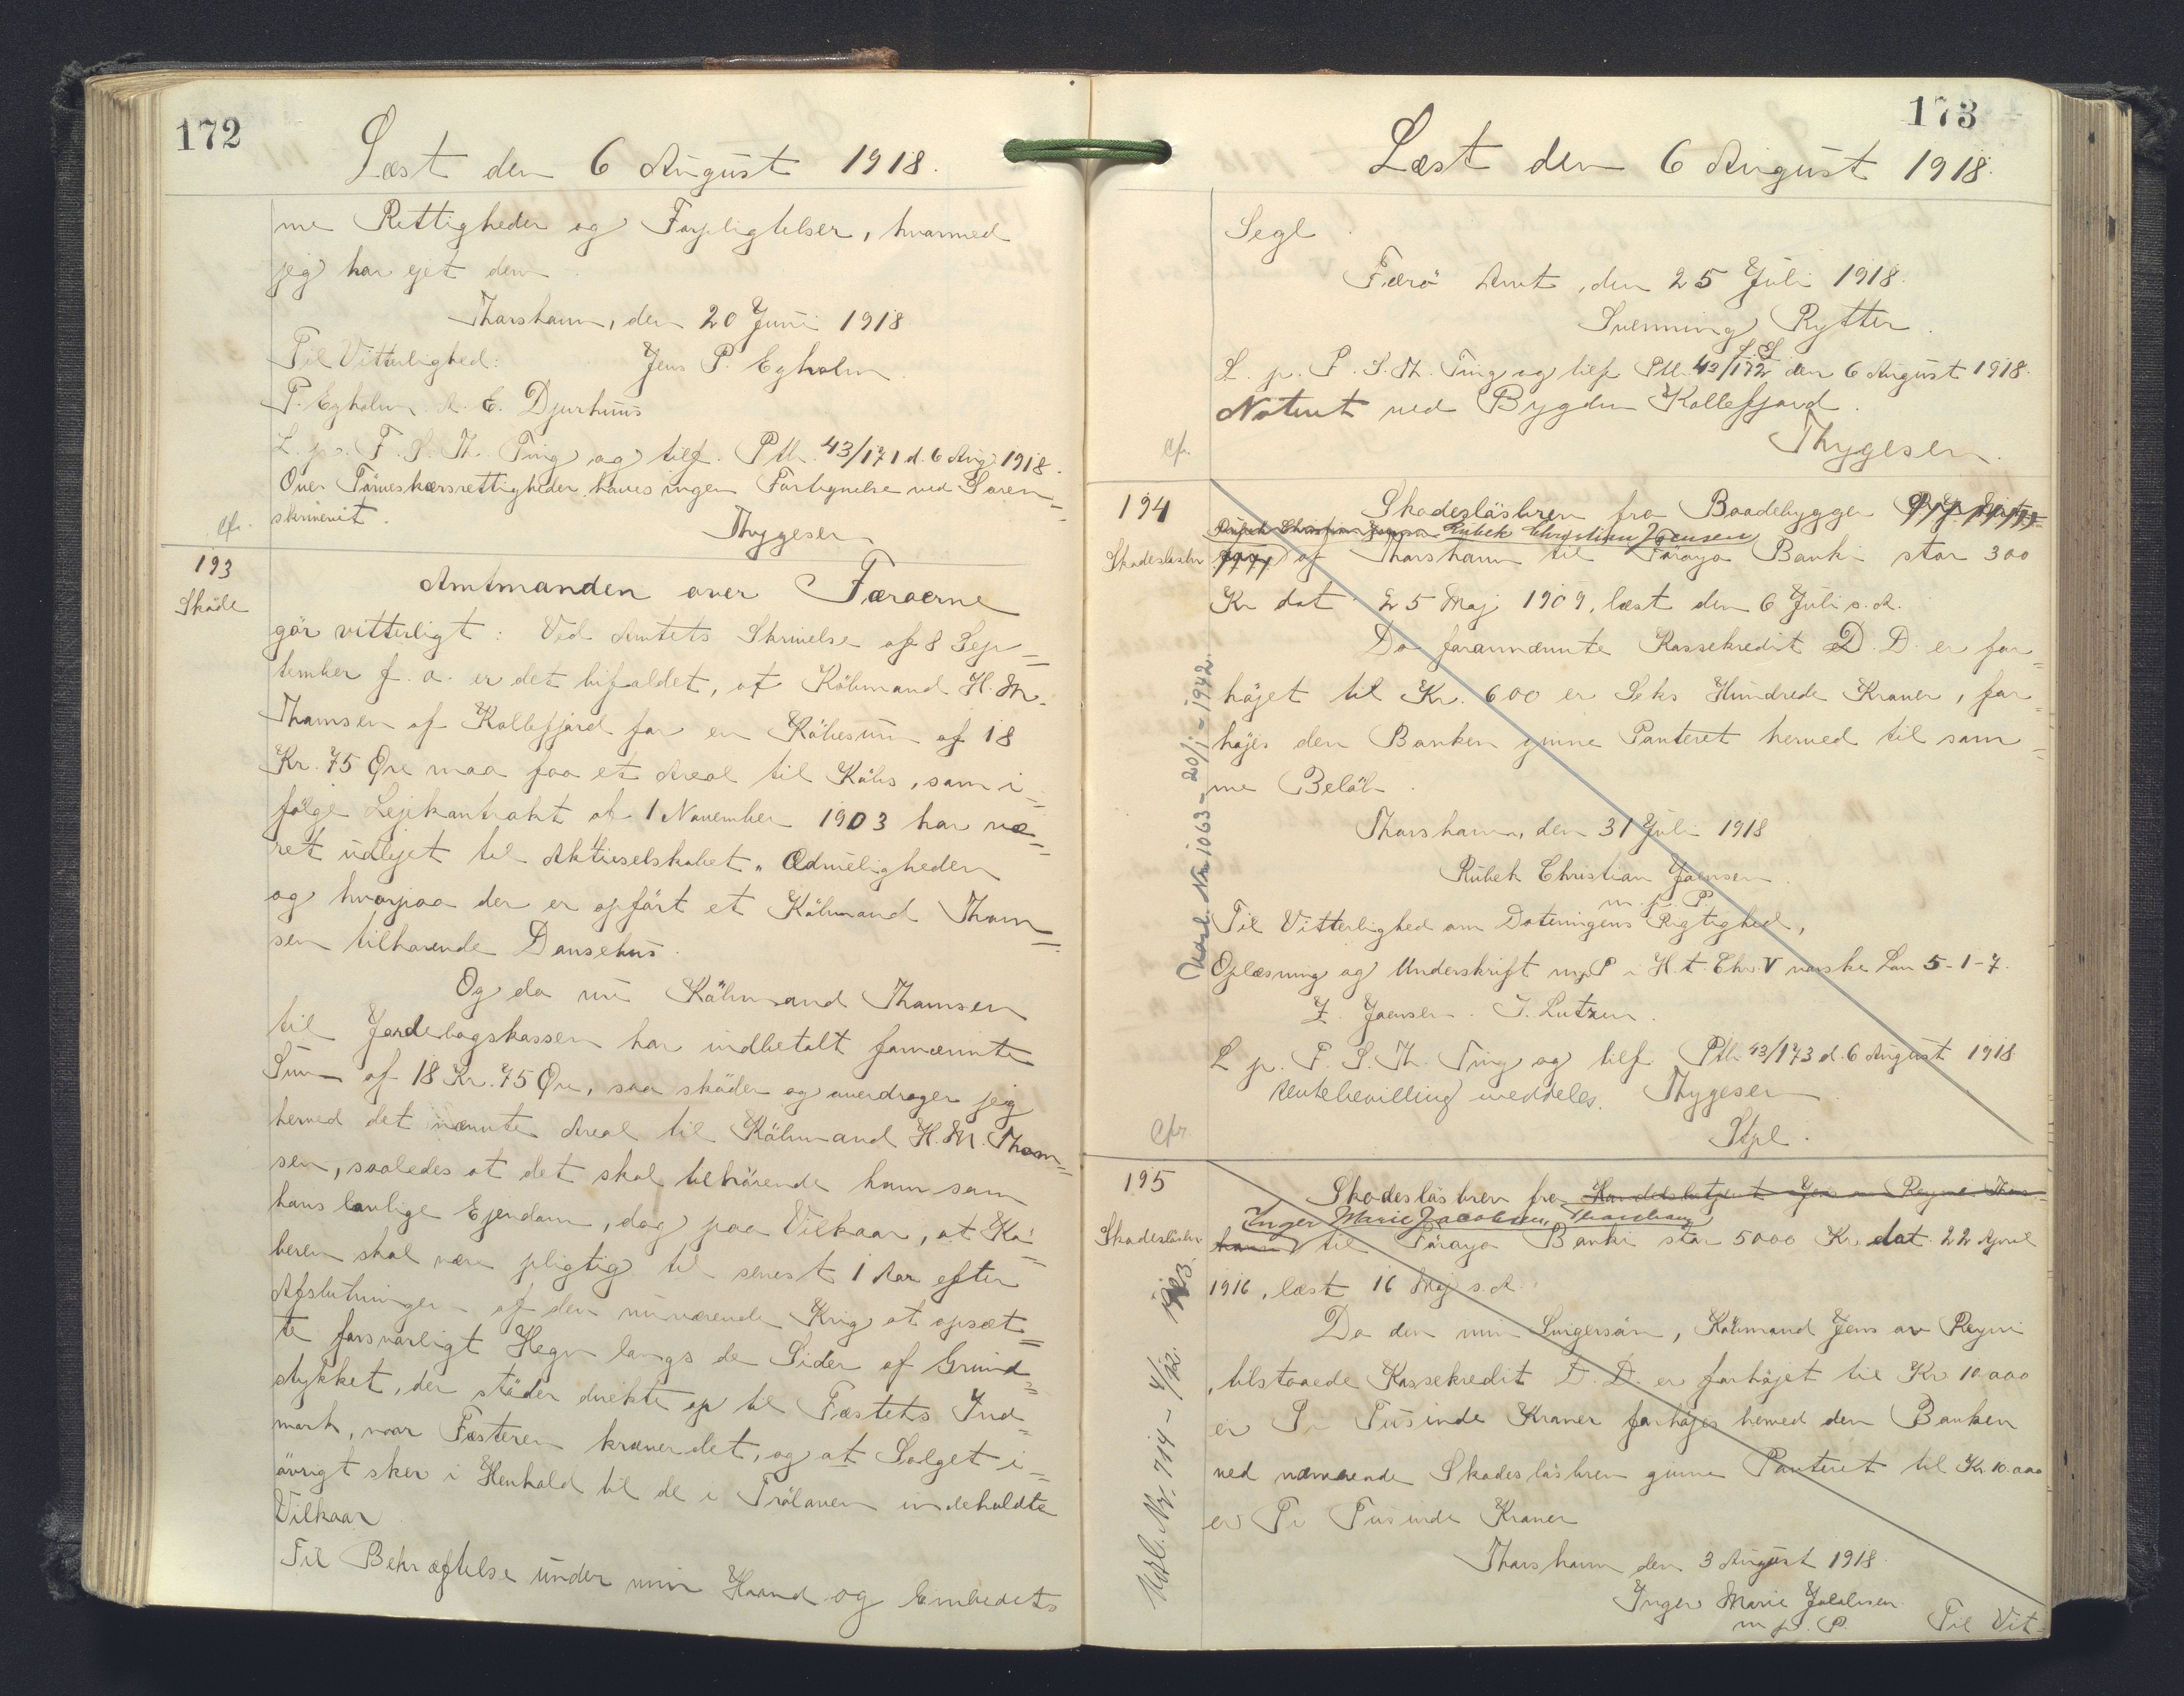 172
Læst den 6 August 1918.
me Rettigheder og Forpligtelser, hvormed
jeg har ejet den
Thorshavn, den 20 Juni 1918
Til Vitterlighed: Jens P. Egholm
P. Egholm. A. E. Djurhuus
L. p. F. S. Th. Ting og tilf. Ptb. 43/171 d. 6 Aug. 1918.
Over Törveskærsrettigheder haves ingen Fortegnelse ved Soren=
skriveriet.
cfr.
Thygesen
193
Skøde
Amtmanden over Færoerne
gör vitterligt: Ved Amtets Skrivelse af 8 Sep=
tember f. a. er det bifaldet, at Köbmand H. M.
Thomsen af Kollefjord for en Köbesum af 18
Kr. 75 Øre maa faa et Areal til Köbs, som i=
fölge Lejekontrakt af 1 November 1903 har væ=
ret udlejet til Aktieselskabet „Ædrueligheden
og hvorpaa der er opfört et Köbmand Thom=
sen tilhorende Dansehus.
Og da nu Köbmand Thomsen
til Jordebogskassen har indbetalt fornævnte
Sum af 18 Kr. 75 Öre, saa sköder og overdrager jeg
herved det nævnte Areal til Köbmand H. M. Thom=
sen, saaledes at det skal tilhörende ham som
hans lovlige Ejendom, dog paa Vilkaar, at Kö=
beren skal være pligtig til senest 1 Aar efter
Afslutningen af den nuværende Krig at opsæt=
te forsvarligt Hegn langs de Sider af Grund=
stykket, der stöder direkte op til Fæstets Ind=
mark, naar Fæsteren kræver det, og at Salget i=
övrigt sker i Henhold til de i Frölaven indeholdte
Vilkaar
Til Bekræftelse under min Haand og Embedets
173
Læst den 6 August 1918.
Segl
Færö Amt, den 25 Juli 1918.
Svenning Rytter.
L. p. F. S. Th. Ting og tilf Ptb. 43/172 den 6 August 1918.
Noteret ved Bygden Kollefjord.
cfr.
Thygesen.
194
Skadeslösbrev fra Baadebygger
Rubek Christian Joensen
Skadeslösbr
af Thorshavn til Föroya Banki stor 300
Kr dat 25 Maj 1909, læst den 6 Juli s. A.
Da forannævnte Kassekredit D. D. er for=
höjet til Kr. 600 er Seks Hundrede Kroner, for=
höjes den Banken givne Panteret herved til sam=
me Belöb.
Thorshavn, den 31 Juli 1918
Rubek Christian Joensen
m. p. P.
Til Vitterlighed om Dateringens Rigtighed,
Oplæsning og Underskrift m. p. P i H. t. Chr. V norske Lov 5-1-7.
Z. Joensen. J. Lutzen.
L p. F. S. Th. Ting og tilf. Ptb 43/173 d. 6 August 1918
Rentebevilling meddeles. Thygesen
Stpl.
cfr
Udsl. Nr. 1063 - 20/1 - 1942.
195
Skadeslösbrev fra Handelsbetjent Jens av Reyni Thors=
Inger Marie Jacobsen, Thorshavn
Skadeslösbr
havn til Föroya Banki stor 5000 Kr. dat. 22 April
1916, læst 16 Maj s. A.
Da den min Svigersön, Köbmand Jens av Reyni
, tilstaaede Kassekredit D. D. er forhöjet til Kr 10.000
er Ti Tusinde Kroner forhöjes herved den Banken
ved nærværende Skadeslösbrev givne Panteret til Kr. 10.000
er Ti Tusinde Kroner
Thorshavn den 3 August 1918.
Inger Marie Jacobsen.
m. p. P. Til Vit=
Udsl. Nr. 714 - 4/12. 1923.